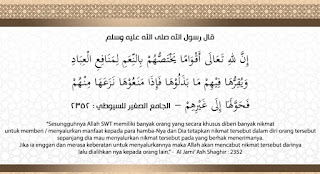 قال رسول الله صلى الله عليه وسلم
إِنَّ لِلّٰهِ تَعَالَى أَقْوَامًا يَخْتَصُّهُمْ بِالنِّعَمِ لِمَنَافِعِ الْعِبَادِ
وَيُقِرُّهَا فِيْهِمْ مَا بَذَلُوْهَا فَإِذَا مَنَعُوْهَا نَزَعَهَا مِنْهُمْ
فَحَوَّلَهَا إِلَى غَيْرِهِمْ – الجامع الصغير للسيوطي : ٢٣٥٢
"Sesungguhnya Allah SWT memiliki banyak orang yang secara khusus diberi banyak nikmat
untuk memberi / menyalurkan manfaat kepada para hamba-Nya dan Dia tetapkan nikmat tersebut dalam diri orang tersebut
sepanjang dia mau menyalurkan nikmat tersebut pada yang berhak menerimanya.
Jika ia enggan dan merasa keberatan untuk menyalurkannya maka Allah akan mencabut nikmat tersebut darinya
lalu dialihkan nya kepada orang lain," - Al Jami' Ash Shaghir : 2352